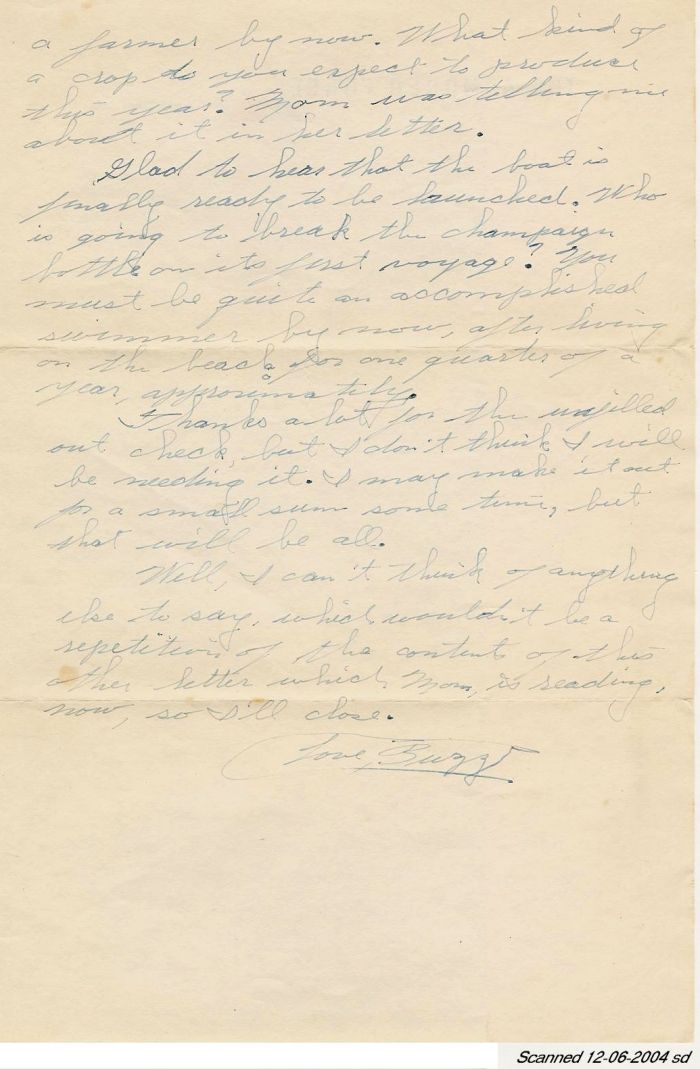 a farmer by now. What kind of
a crop do you expect to produce
this year? Mom was telling me
about it in her letter.
Glad to hear that the boat is
finally ready to be launched. Who
is going to break the champaign
bottle on its first voyage? You
must be quite an accomplished
swimmer by now, after living
on the beach for one quarter of a
year, approximately.
Thanks a lot for the unfilled
out check, but I don't think I will
be needing it. I may make it out
for a small sum some time, but
that will be all.
Well, I can't think of anything
else to say, which wouldn't be a
repetition of the contents of this
other letter which Mom, is reading,
now, so I'll close.
Love, Buzz
Scanned 12-06-2004 sd